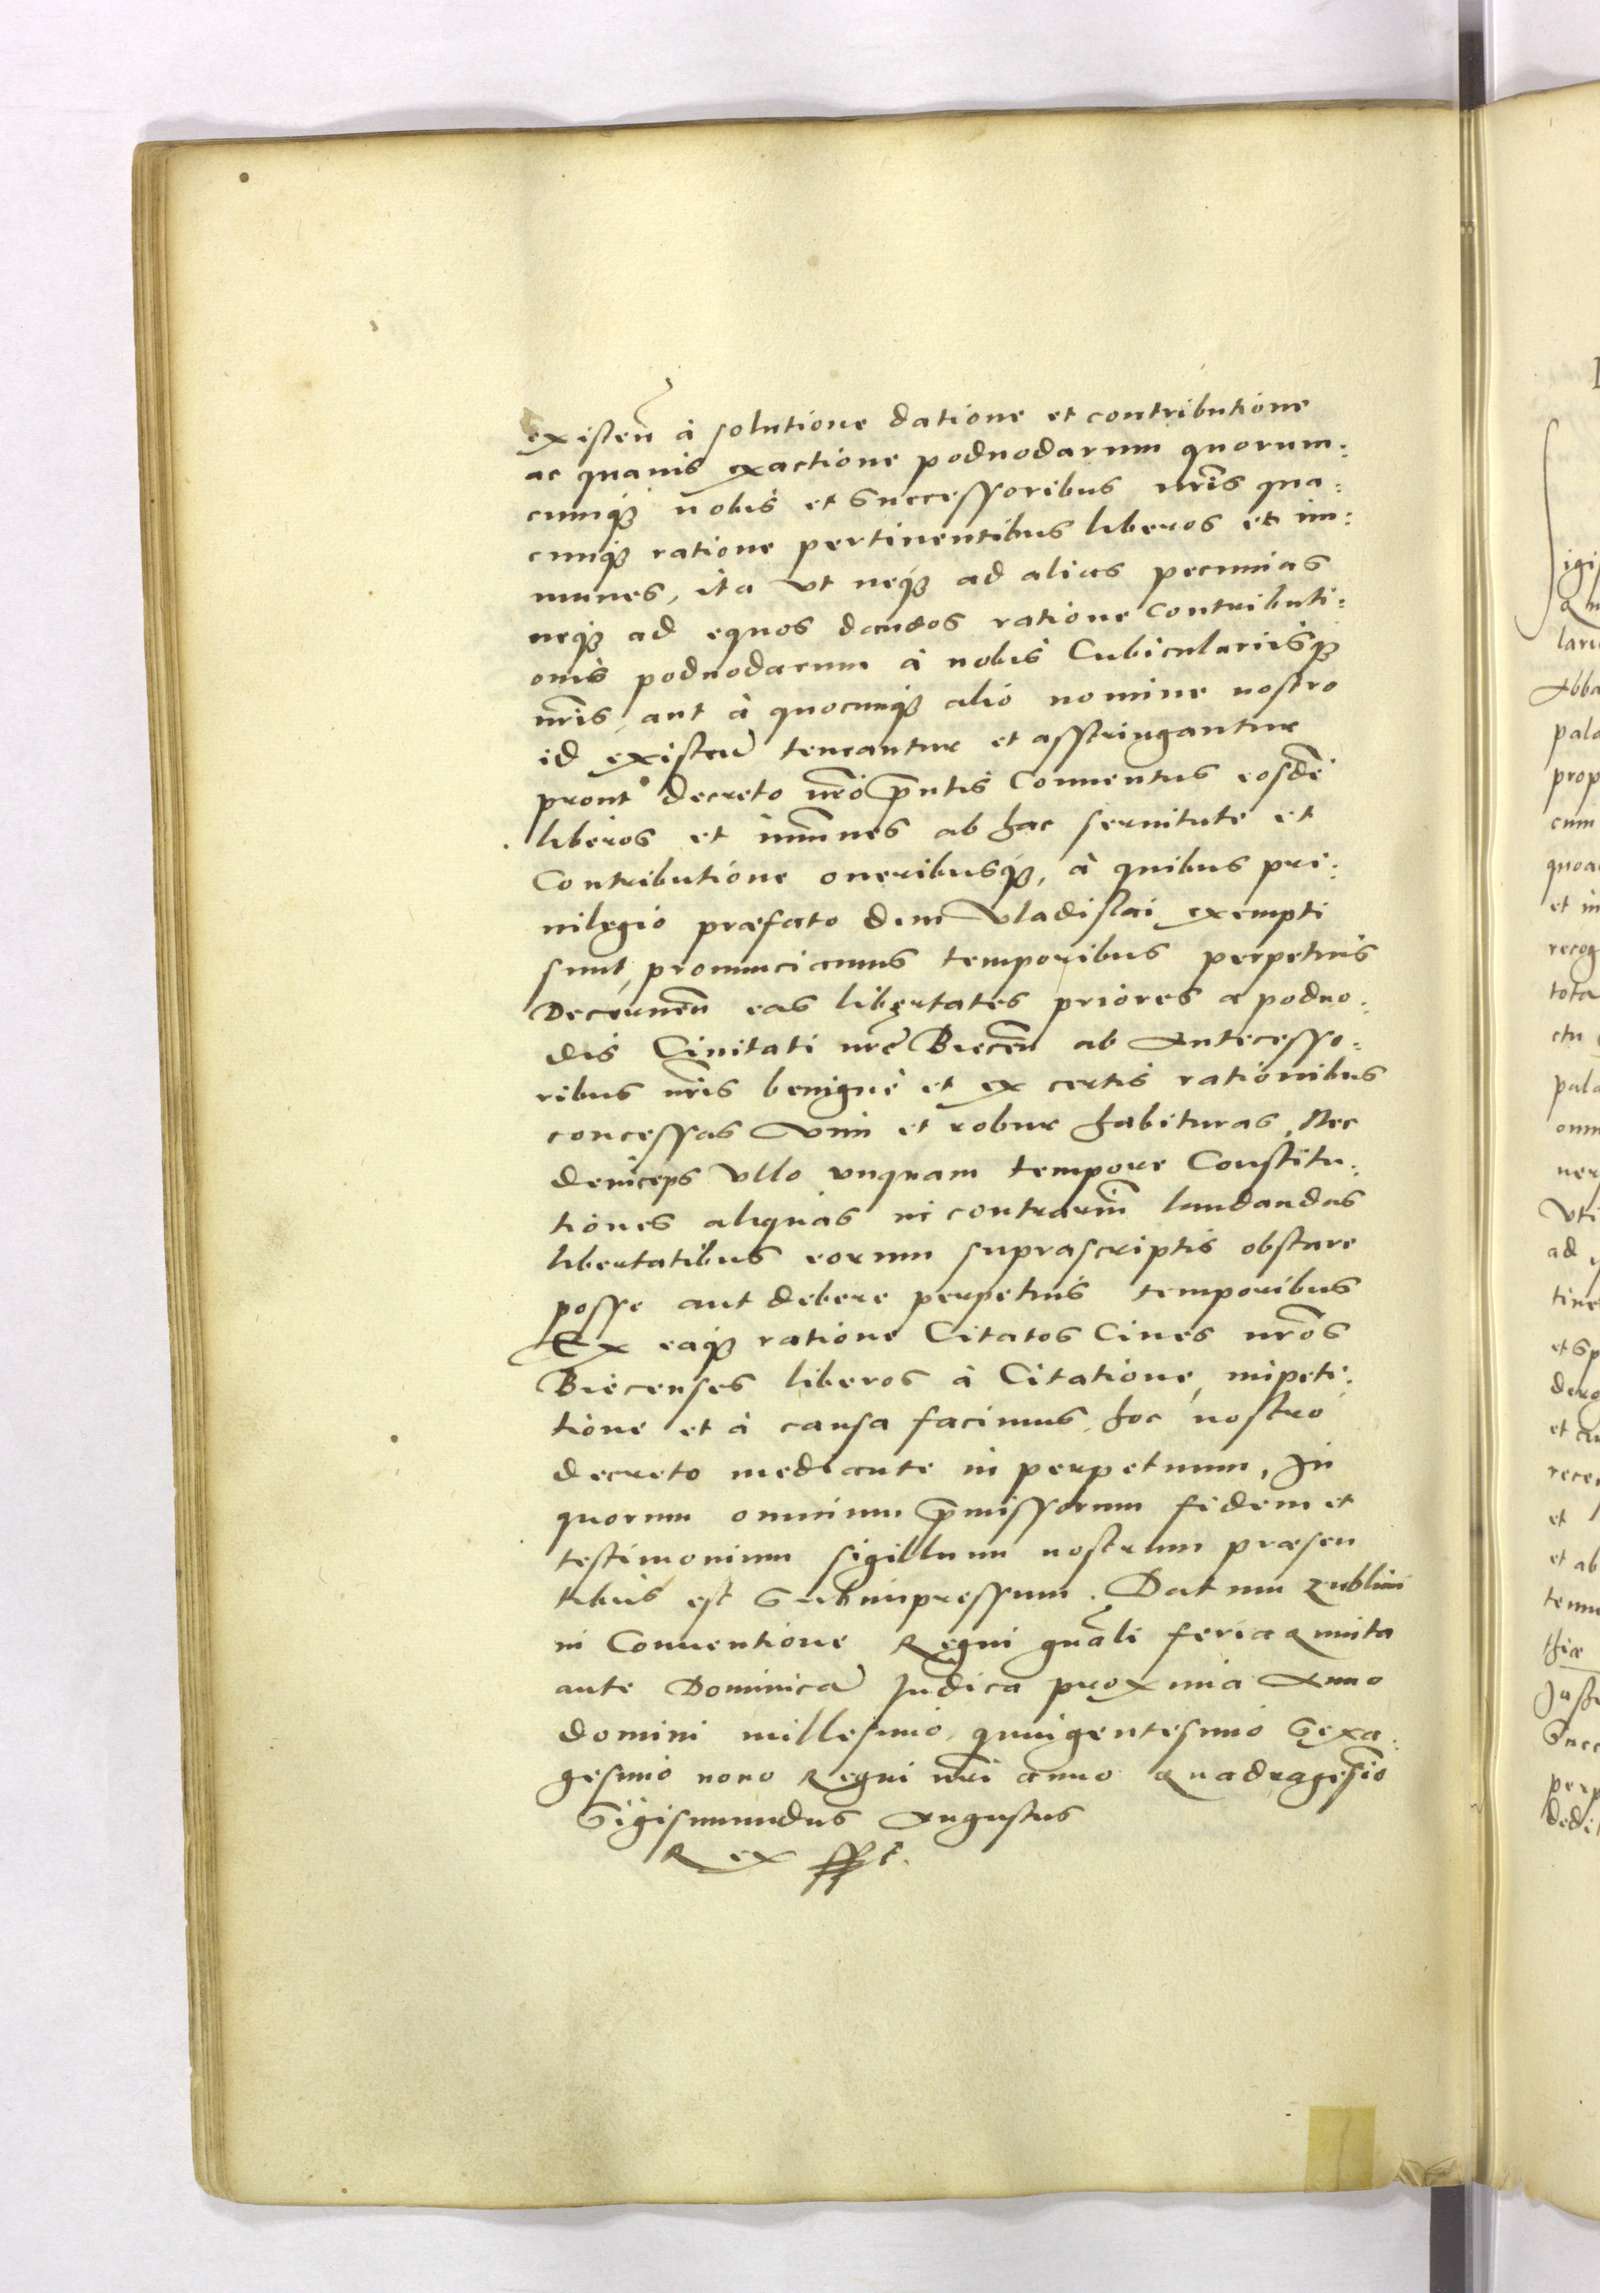 existen̄ à solutione datione et contributione
ac quauis exactione poduodarum quorum:
cunq̃ nobis et Successoribus nr̃is qua:
cunq̃ ratione pertinentibus liberos et im:
munes, ita vt neq̃ ad alias pecunias
neq̃ ad equos dandos ratione contributi:
onis poduodarum à nobis Cubiculariisq̃
nr̃is, aut à quocunq̃ alio nomine nostro
id existen̄ teneantur et asstringantur
prout decreto nr̃o p̃ntis Conuentus eosdẽ
liberos et im̃unes ab hac seruitute et
Contributione oneribusq̃, à quibus pri:
uilegio præfato diui Vladislai exempti
sunt, pronunciamus temporibus perpetuis
Decernen̄ eas libertates priores a poduo:
dis Ciuitati nrẽ Biecen̄ ab Antecesso:
ribus nr̃is benignè et ex certis rationibus
concessas vim et robur habituras, Nec
deinceps vllo vnquam tempore Constitu:
tiones aliquas in contrariũ laudandas
libertatibus eorum suprascriptis obstare
posse aut debere perpetuis temporibus
Ex eaq̃ ratione Citatos Ciues nr̃os
Biecenses liberos à Citatione, impeti:
tione et à causa facimus hoc nostro
decreto mediante in perpetuum, In
quorum omnium p̃missorum fidem et
testimonium sigillum nostrum præsen
tibus est Subimpressum. Datum Lublini
in Conuentione Regni gn̄ali feria Quinta
ante Dominicã Iudica proxima Anno
domini millesimo, quingentesimo Sexa:
gesimo nono Regni nr̃i anno Quadragesĩo
Sigismundus Augustus
Rex sst.